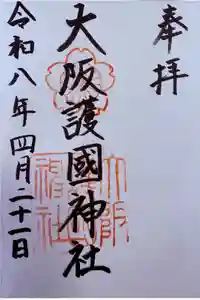 奉拝
大阪護國神社
令和八年四月二十一日